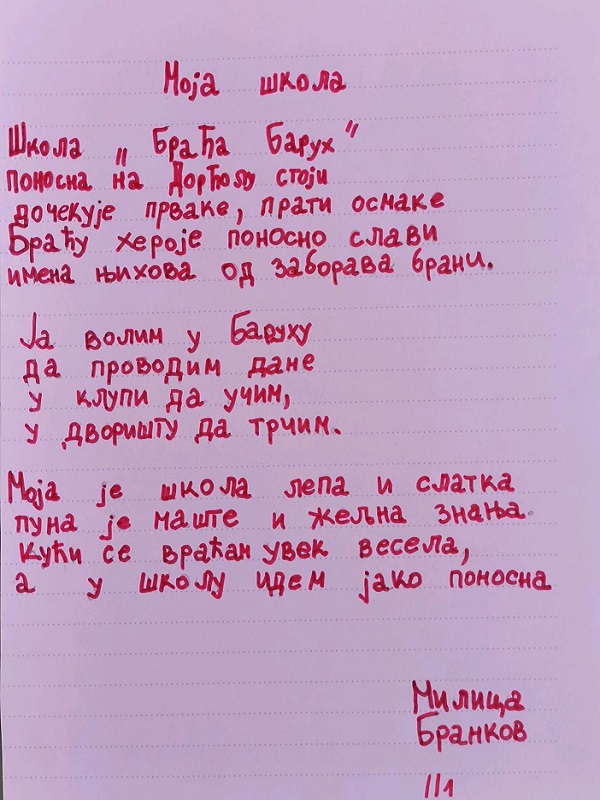 Моја школа
Школа „ Браћа Барух"
поносна на Дорћолу стоји
дочекује прваке, прати осмаке
Браћу хероје поносно слави
имена њихова од заборава брани.
Ја волим у Баруху
да проводим дане
у клупи да учим,
у дворишту да трчим.
Моја је школа лепа и слатка
пуна је маште и жељна знања.
Кући се враћан увек весела,
а у школу идем јако поносна
Милица
Бранков
II1